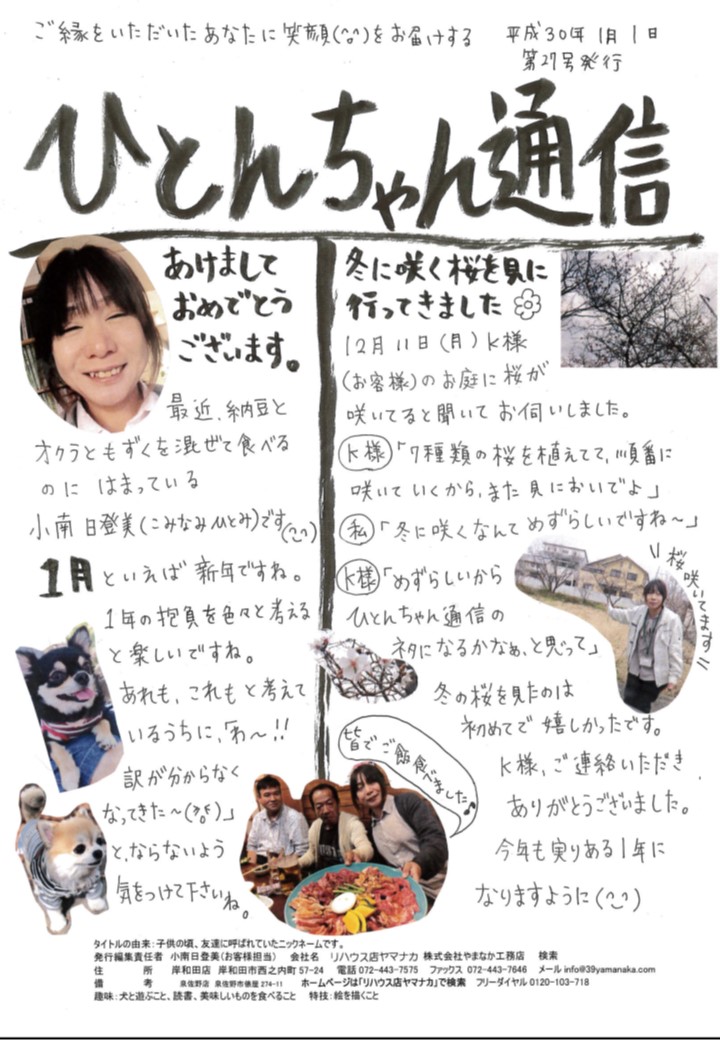 ご縁をいただいたあなたに笑顔(^o^)をお届けする
平成30年1月1日
第27号発行
ひとんちゃん通信
あけまして
おめでとう
ございます。
最近、納豆と
オクラともずくを混ぜて食べる
のに はまっている
小南 日登美(こみなみひとみ)です(^_^)
1月といえば 新年ですね。
1年の抱負を色々と考える
と楽しいですね。
あれも、これもと考えて
いるうちに、「わ〜!!
訳が分からなく
なってきた〜」
と、ならないよう
気をつけて下さいね。
冬に咲く桜を見に
行ってきました
12月11日(月)K様
(お客様)のお庭に桜が
咲いてると聞いてお伺いしました。
K様「7種類の桜を植えてて、順番に
咲いていくから、また見においでよ」
私「冬に咲くなんてめずらしいですね〜」
K様「めずらしいから
ひとんちゃん通信の
ネタになるかなぁ、と思って」
\\桜咲いてます//
冬の桜を見たのは
初めてで嬉しかったです。
K様、ご連絡いただき
ありがとうございました。
今年も実りある1年に
なりますように(^_^)
皆でご飯食べました♪
タイトルの由来:子供の頃、友達に呼ばれていたニックネームです。
発行編集責任者 小南日登美(お客様担当) 会社名 リハウス店ヤマナカ 株式会社やまなか工務店 検索
住 所 岸和田店 岸和田市西之内町57-24 電話072-443-7575 ファックス 072-443-7646 メールinfo@39yamanaka.com
備 考 泉佐野店 泉佐野市俵屋274-11 ホームページは「リハウス店ヤマナカ」で検索 フリーダイヤル0120-103-718
趣味:犬と遊ぶこと、読書、美味しいものを食べること 特技:絵を描くこと